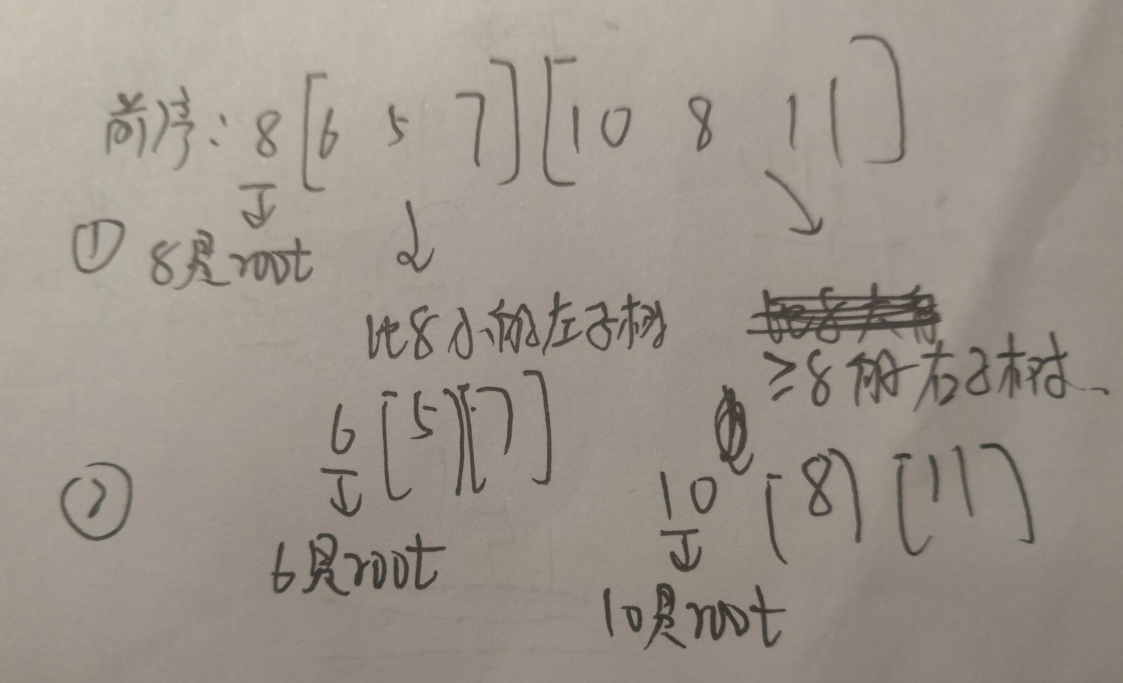 前序: 8 [6 5 7] [10 8 11]
① 8是root
比8小的左子树
≥8的右子树
② 6 [5] [7]
10 [8] [11]
6是root
10是root